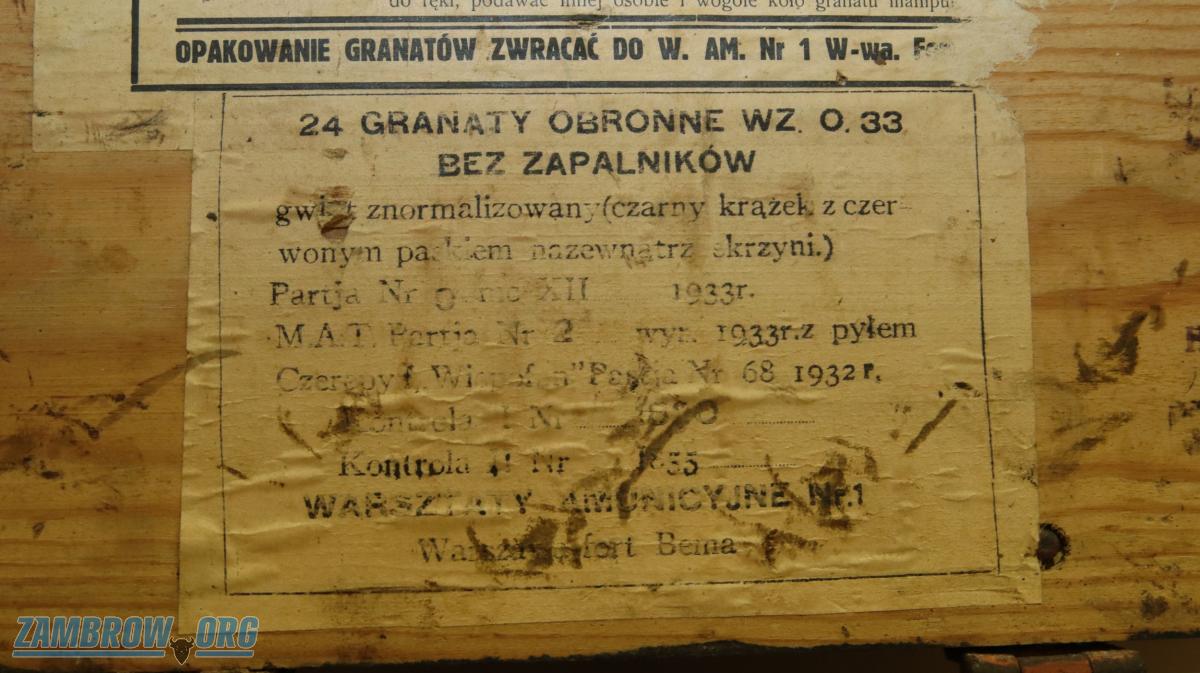 do ręki, podawać innej osobie i wogóle koło granatu manipu
OPAKOWANIE GRANATÓW ZWRACAĆ DO W. AM. Nr 1 W-wa.
24 GRANATY OBRONNE WZ. O. 33
BEZ ZAPALNIKÓW
gwint znormalizowany (czarny krążek z czer-
wonym paskiem nazewnątrz skrzyni.)
Partja Nr XII 1933r.
M.A.T. Partja Nr 2 wyr. 1933r. z pyłem
Czerepy f. Partja Nr 68 1932r.
Kontrola I Nr
Kontrola II Nr
WARSZTATY AMUNICYJNE Nr.1
Warszawa fort Bema
ZAMBROW.ORG